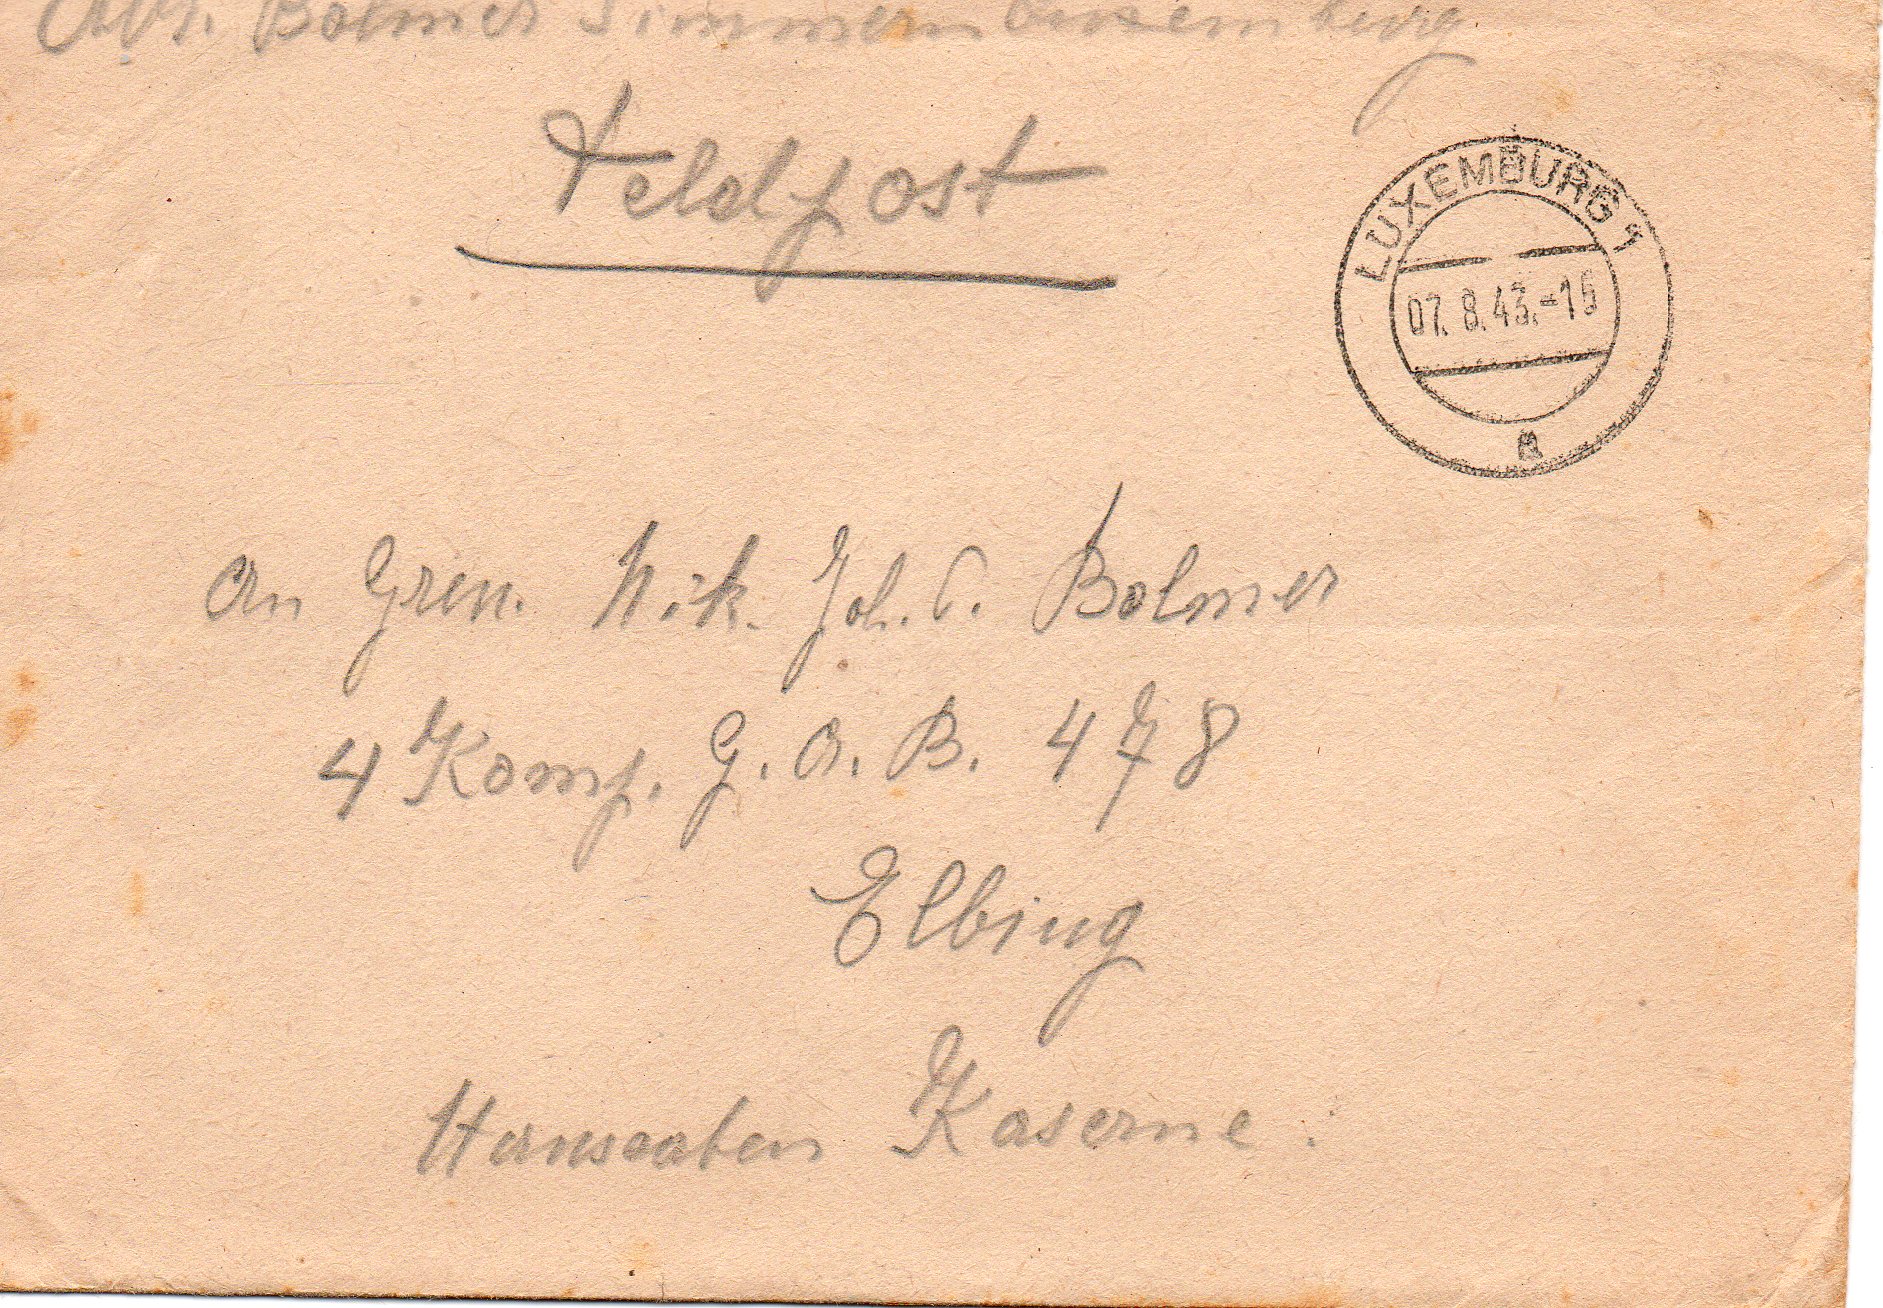 Abs. Bolmer Simmern Luxemburg
Feldpost
LUXEMBURG 1
07.8.43.-15
a
An Gren. Nik. Joh. C. Bolmer
4 Komp. G. A. B. 478
Elbing
Hanseaten Kaserne.